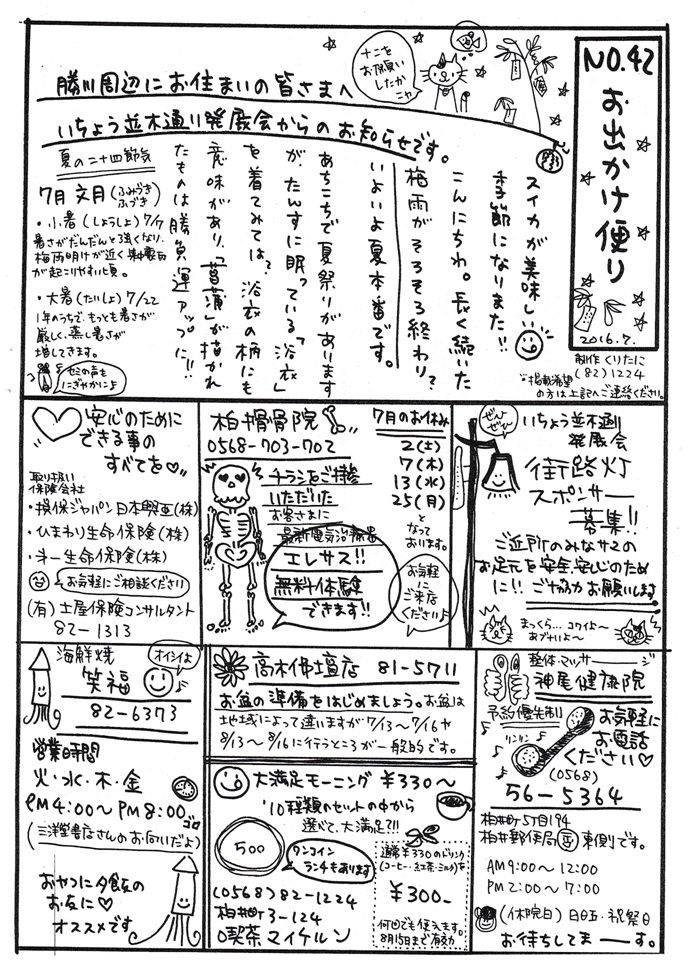 NO.42
お出かけ便り
2016.7.
制作 くりたに
(82)1224
※掲載希望
の方は上記へご連絡ください。
十二を
お願い
したか
ニャ
勝川周辺にお住まいの皆さまへ
いちょう並木通り発展会からのお知らせです。
スイカが美味しい
季節になりました!!
こんにちわ。長く続いた
梅雨がそろそろ終わり?
いよいよ夏本番です。
あちこちで夏祭りがあります
が、たんすに眠っている「浴衣」
を着てみては?浴衣の柄にも
意味があり、「菖蒲」が描かれ
たものは勝負運アップに!!
夏の二十四節気
7月 文月(ふみづき
ふづき)
・小暑(しょうしょ)7/7
暑さがだんだんと強くなり、
梅雨明けが近く集中豪雨
が起こりやすい頃。
・大暑(たいしょ)7/22
1年のうちで、もっとも暑さが
厳しく、蒸し暑さが
増してきます。
セミの声も
にぎやかに♪
安心のために
できる事の
すべてを♡。
取り扱い
保険会社
・損保ジャパン日本興亜(株)
・ひまわり生命保険(株)
・第一生命保険(株)
お気軽にご相談ください
(有)土屋保険コンサルタント
82-1313
柏接骨院
0568-703-702
チラシをご持参
いただいた
お客さまに
最新電気治療器
エレサス!!
無料体験
できます!!
7月のお休み
2(土)
7(木)
13(水)
25(月)
と
なって
おります。
お気軽
にご来店
ください♪
ぜんぶ
ぜひ
いちょう並木通り
発展会
街路灯
スポンサー
募集!!
ご近所のみなサマの
お足元を安全、安心のため
に!!ご協力お願いします
まっくら…コワイよ〜
アブナいよ〜
海鮮焼
笑福
オイシイよ
82-6373
営業時間
火・水・木・金
PM4:00〜PM8:00
ゴロ
(三洋堂書店さんのお向いだよ)
おやつに夕飯の
お友に♡
オススメです
高木佛壇店 81-5711
お盆の準備をはじめましょう。お盆は
地域によって違いますが7/13〜7/16や
8/13〜8/16に行うところが一般的です。
大満足モーニング ¥330〜
10種類のセットの中から
選べて、大満足?!!
500
ワンコイン
ランチもあります
(0568)82-1224
柏井町3-124
喫茶マイケルン
通常¥330のドリンク
(コーヒー・紅茶・ミルク)を
¥300-
何回でも使えます。
8月15日まで有効
整体・マッサージ
神尾健康院
予約優先制
リンリン
お気軽に
お電話
ください♡
(0568)
56-5364
柏井町5丁目94
柏井郵便局〒東側です。
AM9:00〜12:00
PM2:00〜7:00
(休院日) 日曜日・祝祭日
お待ちしてまーす。